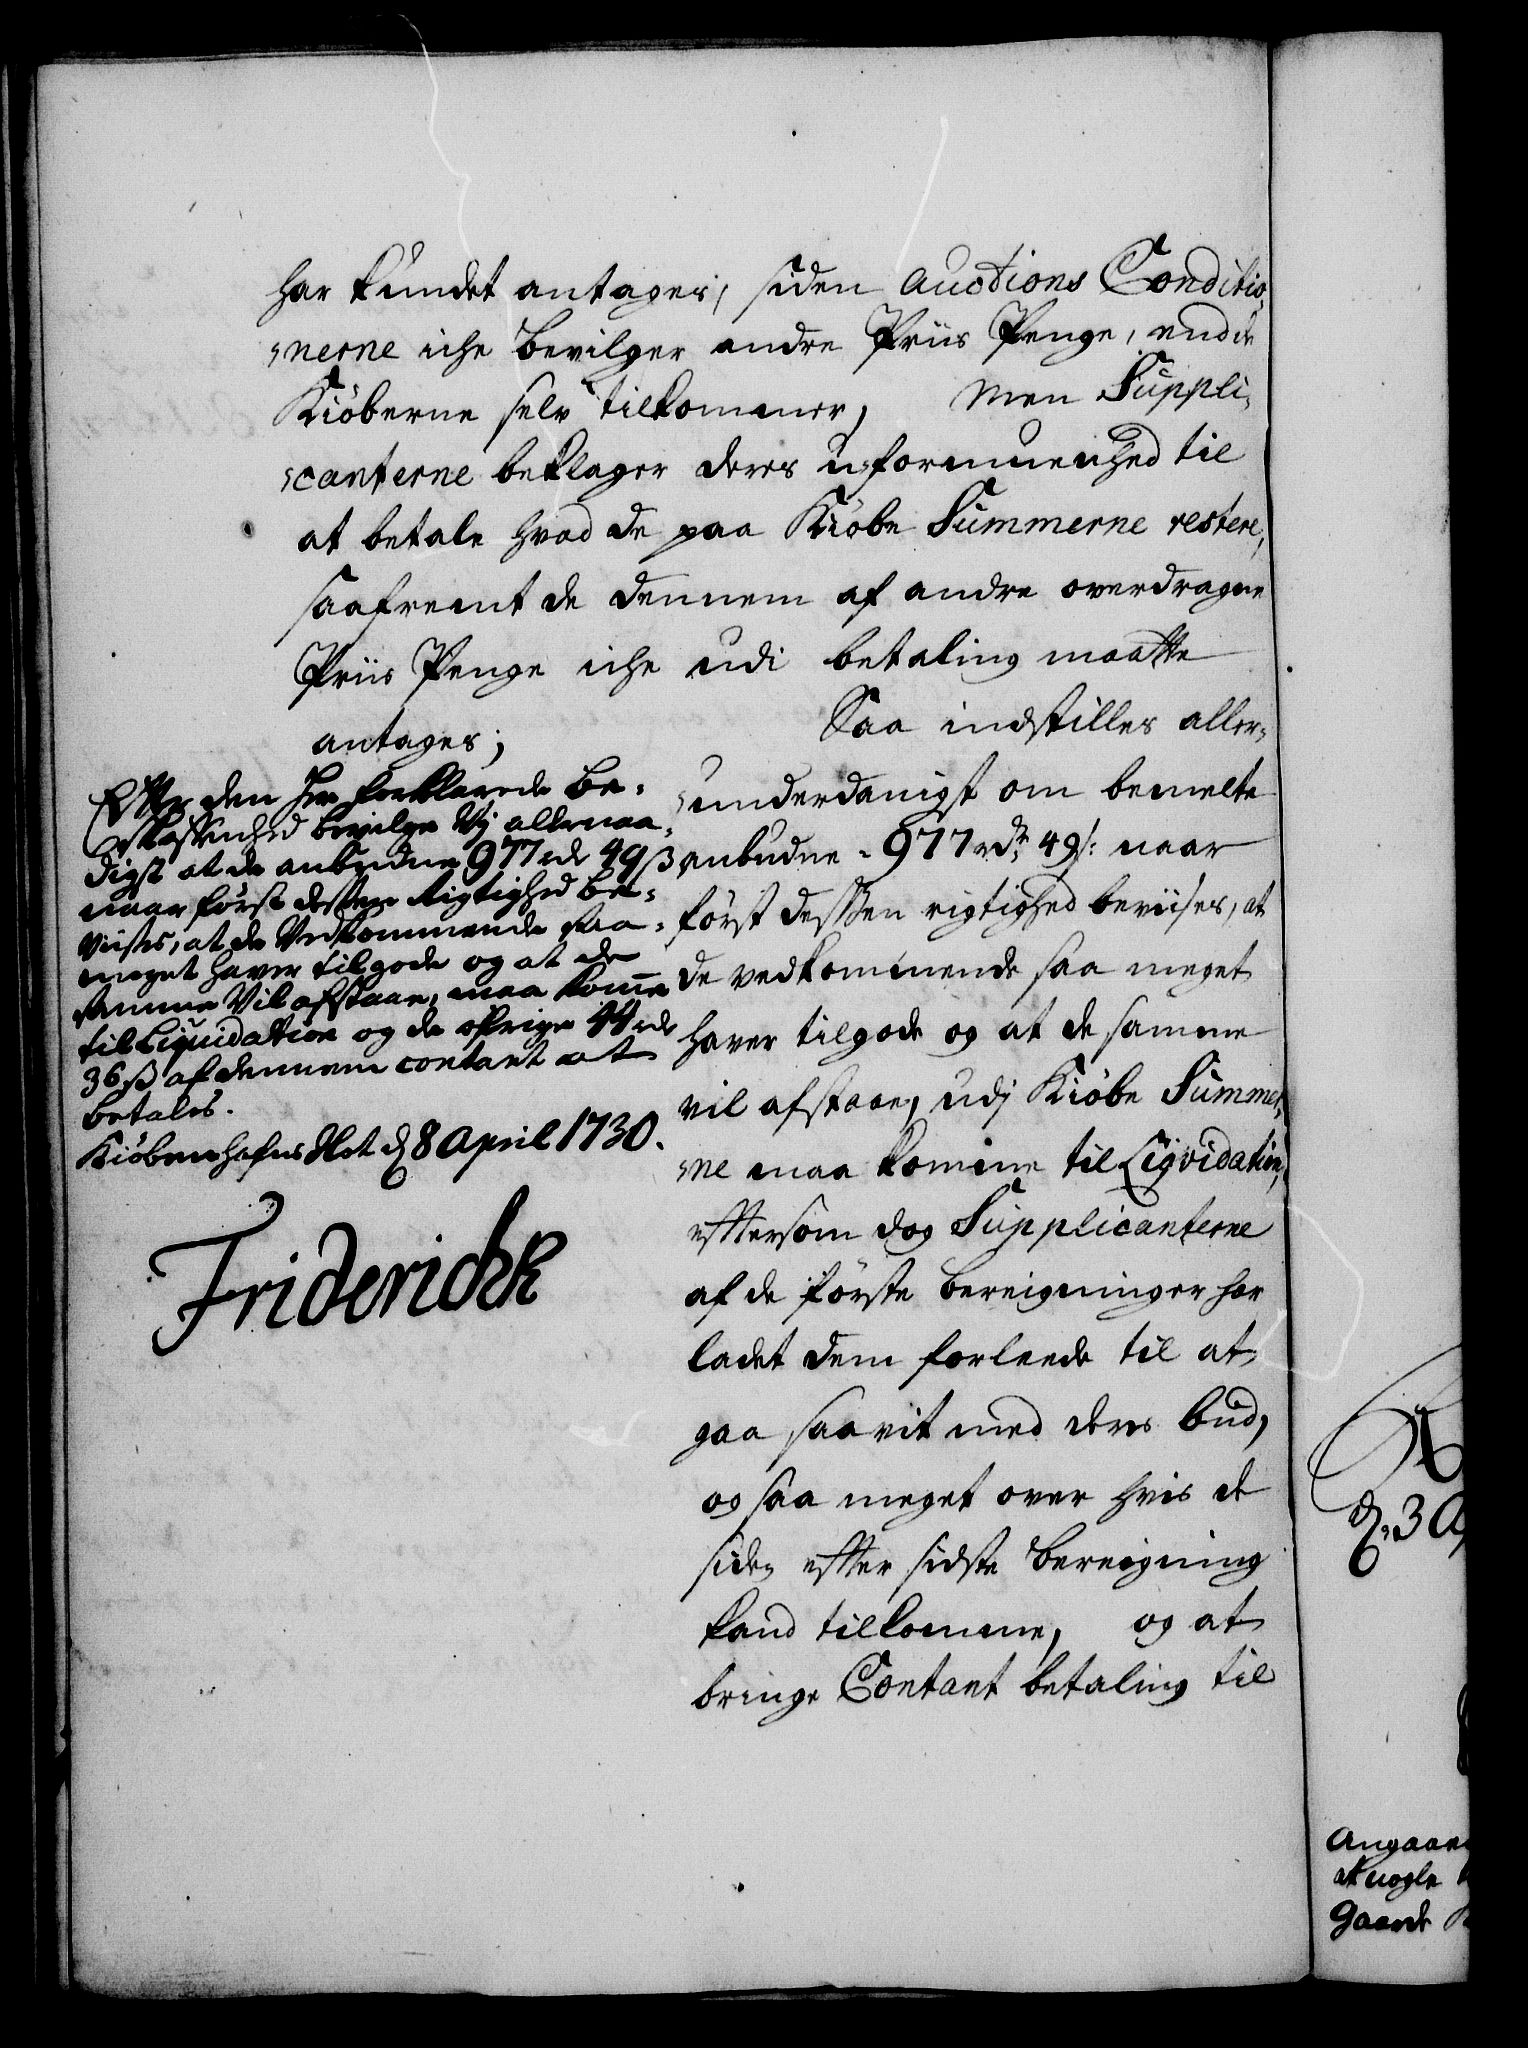 har kundet antages, siden Auctions Conditio-
nerne iche bevilger andre Priis Penge, end de
Kiøberne selv tilkommer, Men Suppli-
canterne beklager deres uformuenhed til
at betale hvad de paa Kiøbe Summerne restere,
saafremt de dennem af andre overdragne
Priis Penge iche udi betaling maatte
antages; Saa indstilles aller-
underdanigst om bemelte
anbudne 977 rdr 49 s: naar
først dessen rigtighed beviises, at
de vedkommende saa meget
haver tilgode og at de samme
vil afstaae, udj Kiøbe Summer-
ne maa komme til Liqvidation,
eftersom dog Supplicanterne
af de første bereigninger har
ladet dem forleede til at
gaa saavit med deres bud,
og saa meget over hvis de
siden efter sidste bereigning
kand tilkomme, og at
bringe Contant betaling til
Efter den her forklarede be-
skaffenhed bevilge Vj allernaa-
digst at de anbudne 977 rdr 49 ß
naar først dessen Rigtighed be-
viises, at de Vedkommende saa-
meget haver tilgode og at de
samme Vil afstaae, maa komme
til Liquidation og de øfrige 44 rdr
36 ß af dennem contant at
betales.
Kiøbenhafns Slot d 8 April 1730.
Friderich R
d. 3 Ap
Angaaen
at nogle
Gaarde